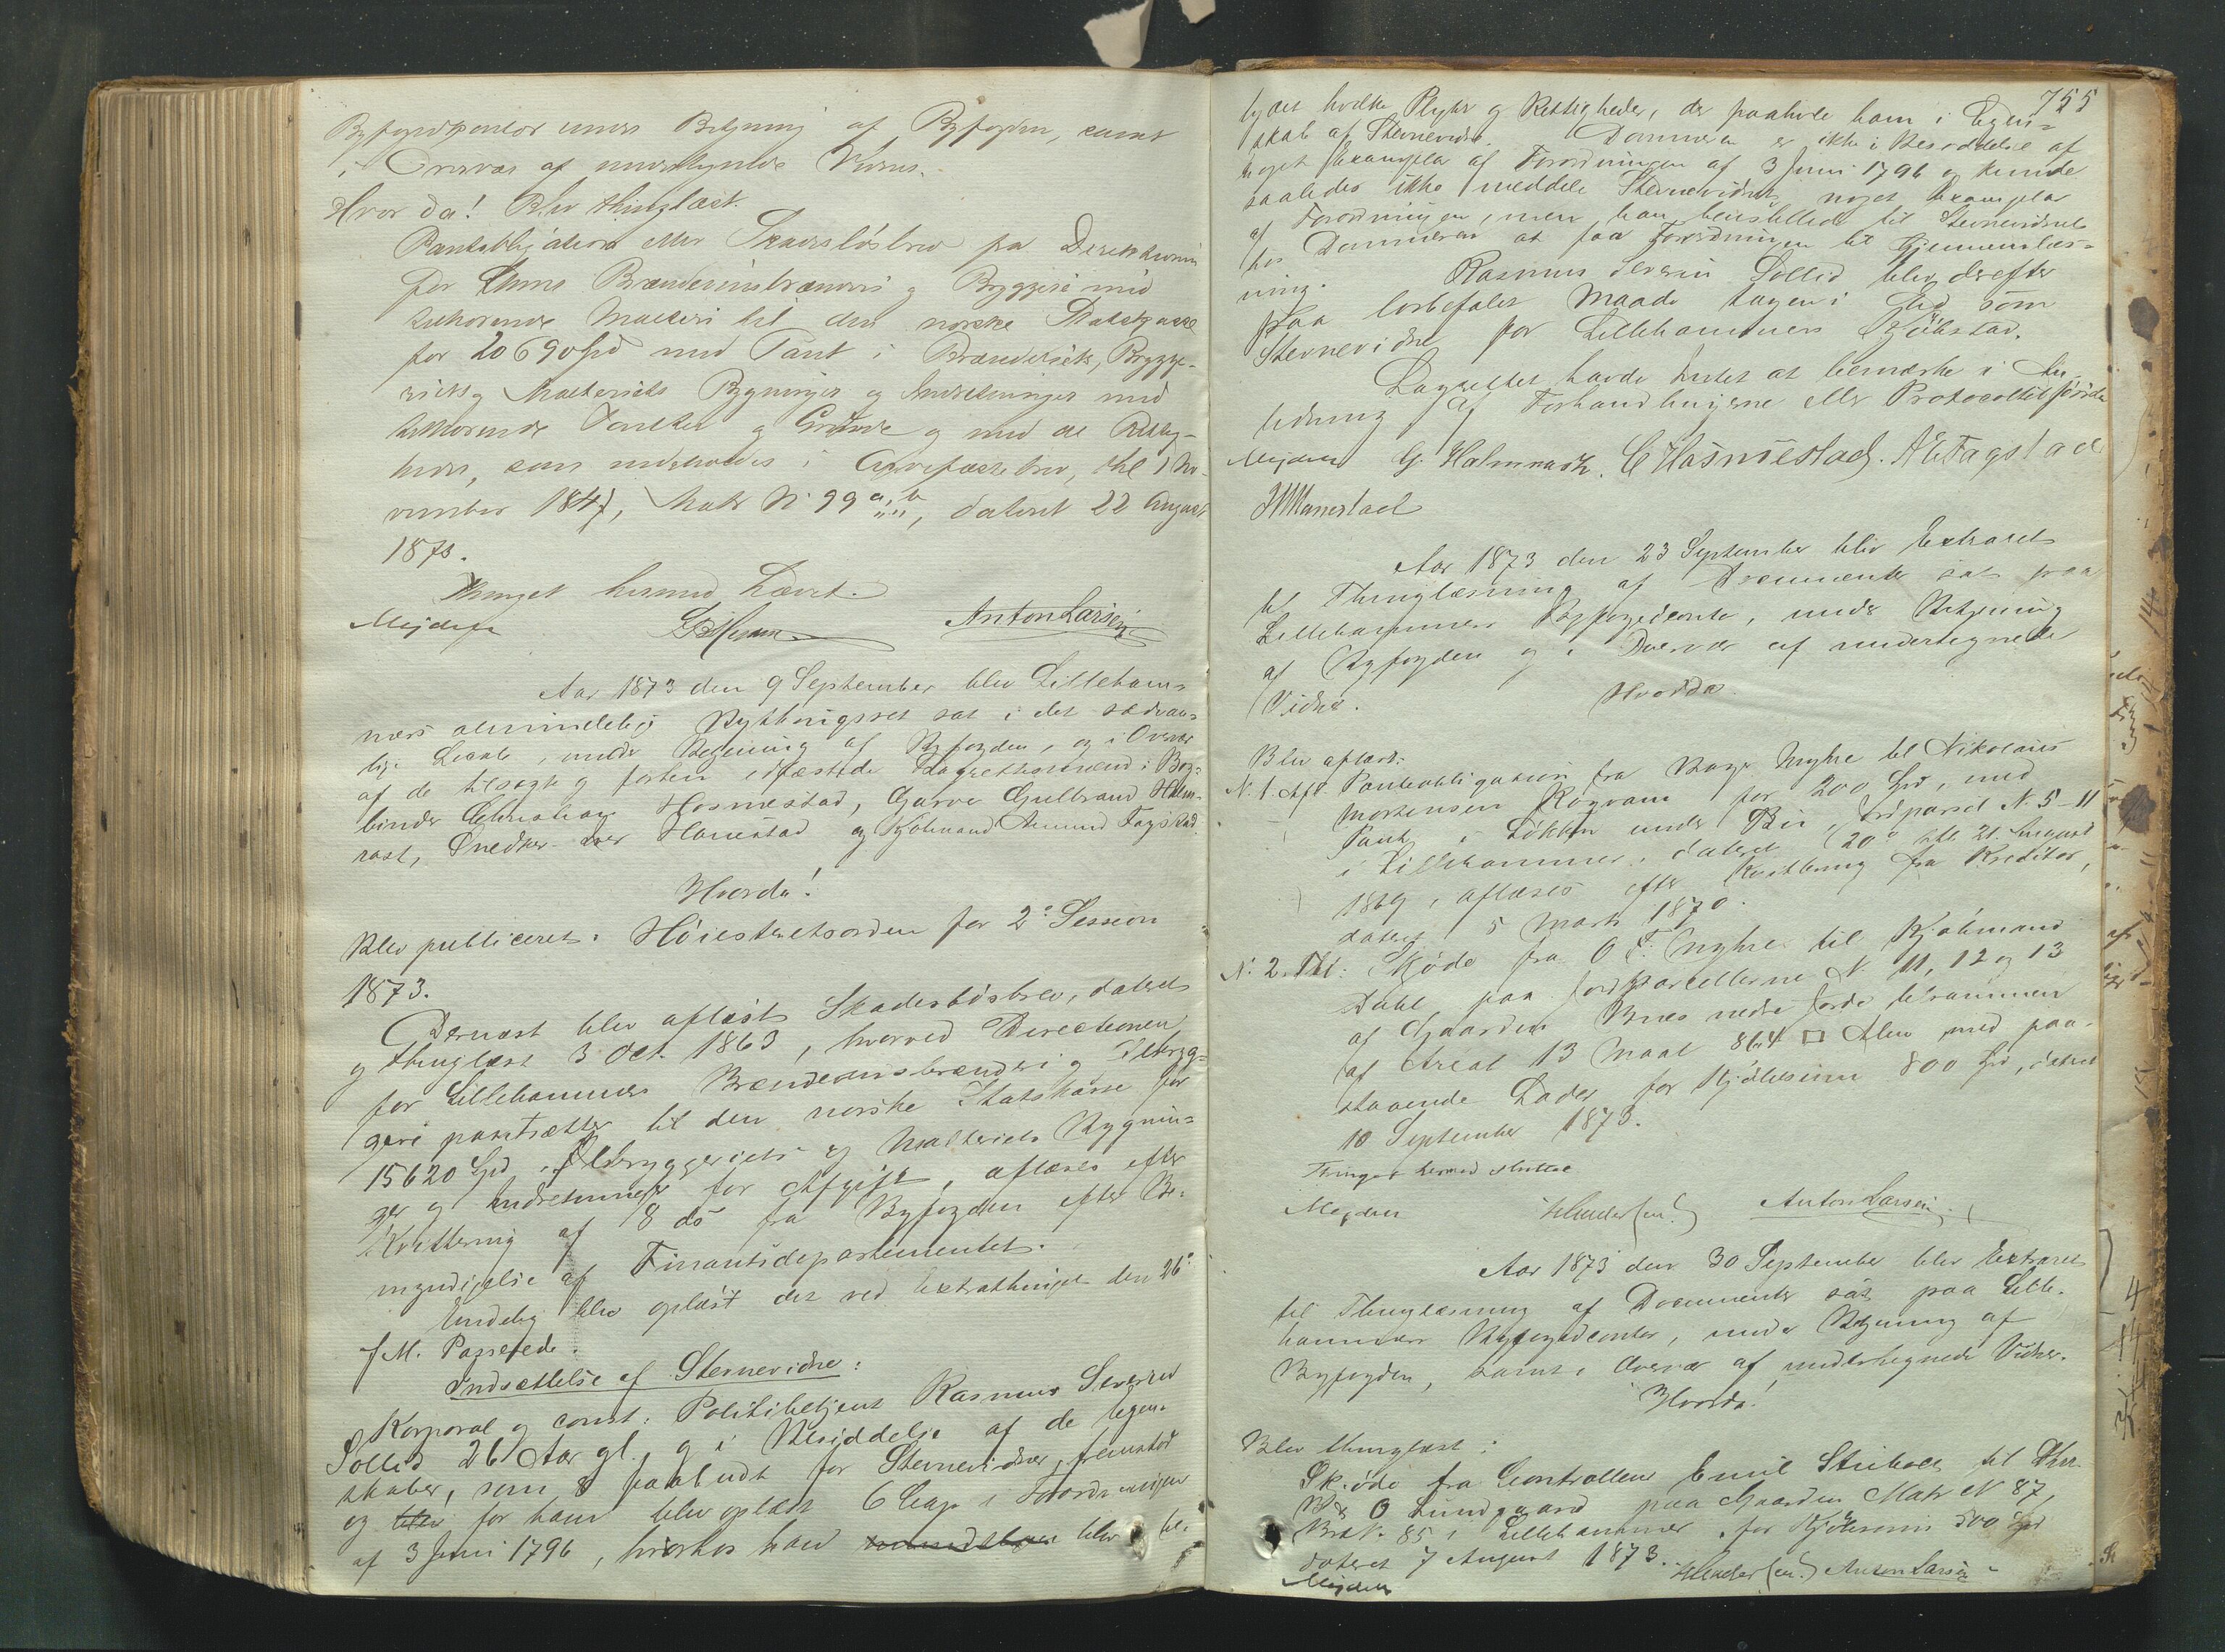 Byfogedcontor under Betjening af Byfogden, samt
i Overvær af undertegnede Vidner.
Hvor da! Blev thinglæst.
Pantobligation eller Skadesløsbrev fra Direktionen
for Hmrs Brænderinsbrænderi og Bryggeri med
tilhørende Malteri til den norske Statskasse
for 20690 Spd med Pant i Brænderiets, Brygge-
riets og Malteriets Bygninger og Indretninger med
tilhørende Tomter og Grunde og med de Rettig-
heder, som indeholdes i Arvefæstebrev, thl. 1 No-
vember 1847, Matr N. 99 a, b, dateret 22 August
1873.
Thinget hermed hævet.
Mejdell Anton Larsen
Aar 1873 den 9 September blev Lilleham-
mers almindelig Bythingsret sat i det sædvan-
lige Locale, under Betjening af Byfogden, og i Overvær
af de tilsagte og forhen edfæstede Lagrettesmænd: Bog-
binder Christian Hosmestad, Garver Gulbrand Halm-
rast, Snedker Iver Hanestad og Kjøbmand Amund Fagstad.
Hvorda!
Blev publiceret: Høiesteretsorden for 2den Session
1873.
Dernæst blev aflæst Skadesløsbrev, dateret
og thinglæst 3 Oct. 1863, hvorved Directionen
for Lillehammers Brændevinsbrænderi og Ølbryg-
geri pantsætter til den norske Statskasse for
15620 Spd, Ølbryggeriets og Malteriets Bygnin-
ger og Indretninger for Afgift, aflæses efter
Kvittering af 8 ds fra Byfogden efter Be-
myndigelse af Finantsdepartementet.
Endelig blev oplæst det ved Extrathinget den 26de
f. M. Passerede.
Indsættelse af Stevnevidne:
Korporal og const. Politibetjent Rasmus Severin
Sollid 26 Aar gl., og i Besiddelse af de Egen-
skaber, som er paabudt for Stevnevidner, fremstod
og blev for ham blev oplæst 6 Cap. i Forordningen
af 3 Juni 1796, hvorhos han blev be-
755
tydet hvilke Pligter og Rettigheder, der paahvile ham i Egen-
skab af Stevnevidne. Dommeren er ikke i Besiddelse af
noget Exemplar af Forordningen af 3 Juni 1796 og kunde
saaledes ikke meddele Stevnevidnet noget Exemplar
af Forordningen, men han henstillede til Stevnevidnet
hos Dommeren at faa Forordningen til Gjennemlæs-
ning.
Rasmus Severin Sollid blev derefter
paa lovbefalet Maade tagen i Ed som
Stevnevidne for Lillehammers Kjøbstad.
Lagrettet havde Intet at bemærke i An-
ledning af Forhandlingerne eller Protocoltilførslen
Mejdell G. Halmrast. C Hosmestad. A E Fagstad
I Hanestad
Aar 1873 den 23 September blev Extraret
til Thinglæsning af Documenter sat paa
Lillehammers Byfogedcontor, under Betjening
af Byfogden og i Overvær af undertegnede
Vidner. Hvorda
Blev aflæst:
N. 1. Afl. Pantobligation fra Borger Myhre til Nikolai
Mortensen Rogvam for 200 Spd, med
Pant i Løkken under Bir, Jordparcel N. 5-11
i Lillehammer, dateret 20de thl. 21. August
1869, aflæses efter Kvittering fra Kreditor,
dateret 5 Marts 1870.
N. 2. Thl: Skjøde fra O. E. Myhre til Kjøbmand
Dahl paa Jordparcellerne N. 11, 12 og 13
af Gaarden Bræs nedre Jorde tilsammen
af Areal 13 Maal 864 □ Alen med paa-
staaende Lader for Kjøbesum 800 Spd, dateret
10 September 1873.
Thinget hermed sluttet
Mejdell Anton Larsen
Aar 1873 den 30 September blev Extraret
til Thinglæsning af Documenter sat paa Lille-
hammers Byfogedcontor, under Betjening af
Byfogden, samt i Overvær af undertegnede Vidner.
Hvorda!
Blev thinglæst:
Skjøde fra Controlleur Emil Stiboldt til
O Lundgaard paa Gaarden Matr N 87,
Br.N. 85 i Lillehammer, for Kjøbesum 500 Spd
dateret 7 August 1873.
Mejdell Anton Larsen